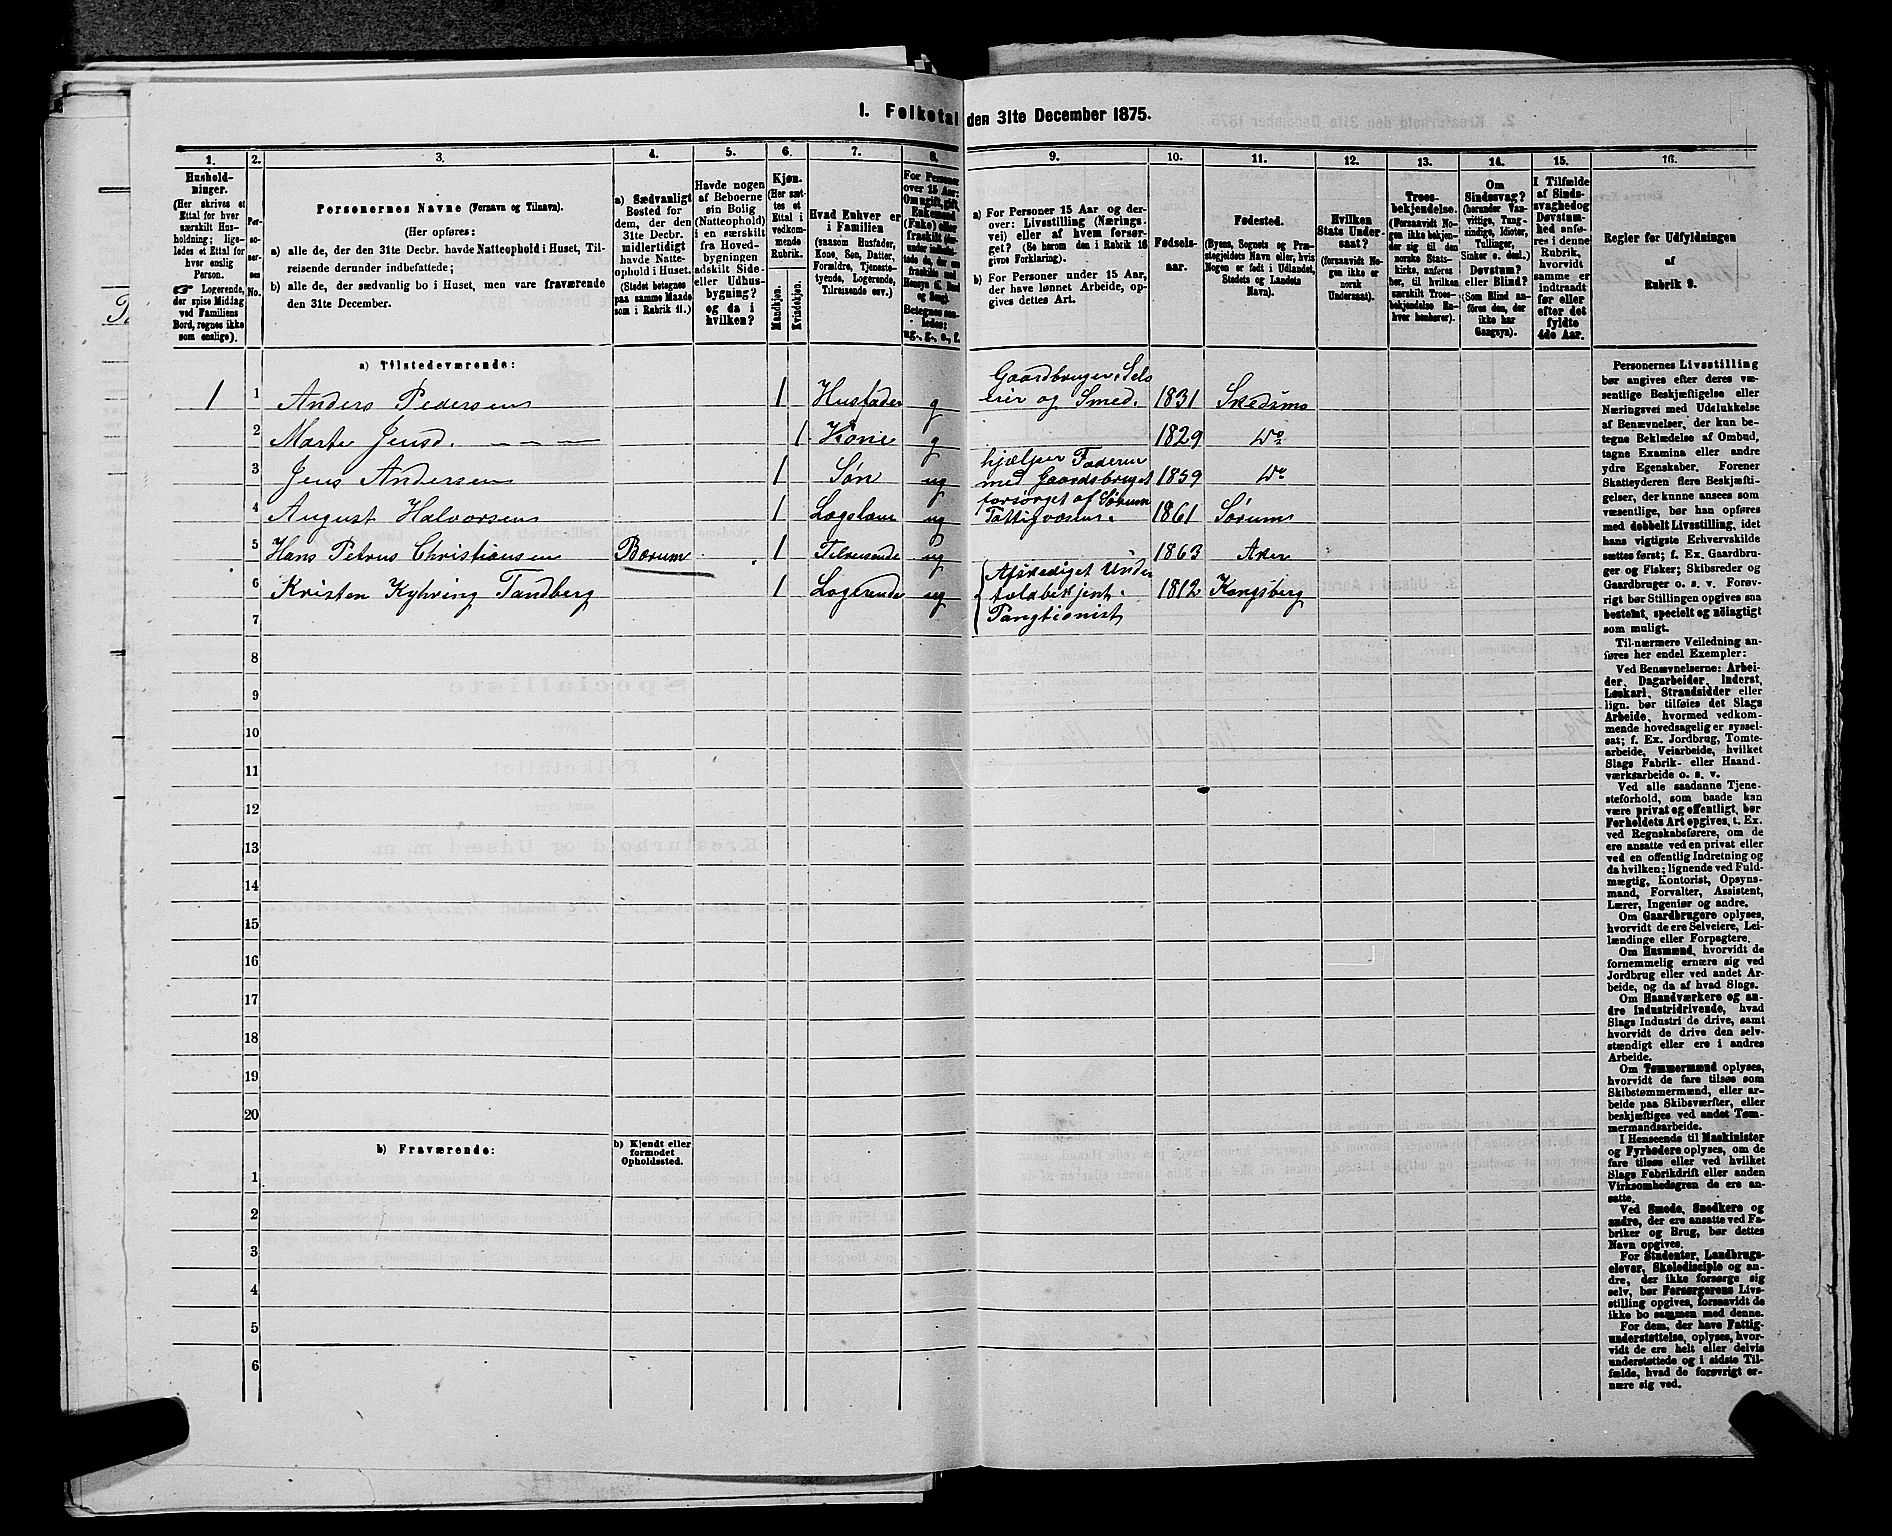 1. Folketal den 31te December 1875.
1. 2. 3. 4. 5. 6. 7. 8. 9. 10. 11. 12. 13. 14. 15. 16.
Hushold-
ninger.
(Her skrives et
Ettal for hver
særskilt Hus-
holdning; lige-
ledes et Ettal
for hver
enslig
Person.
☛ Logerende,
der spise Middag
ved Familiens
Bord, regnes ikke
som enslige).
Per-
so-
ner-
nes
No.
Personernes Navne (Fornavn og Tilnavn).
(Her opføres:
a) alle de, der den 31te Decbr. havde Natteophold i Huset, Til-
reisende derunder indbefattede;
b) alle de, der sædvanlig bo i Huset, men vare fraværende
den 31te December.
a) Sædvanligt
Bosted for
dem, der den
31te Decbr.
midlertidigt
havde Natte-
ophold i Huset.
(Stedet betegnes
paa samme Maade
som i Rubrik 11.)
Havde nogen
af Beboerne
sin Bolig
(Natteophold)
i en særskilt
fra Hoved-
bygningen
adskilt Side-
eller Udhus-
bygning?
og da i
hvilken?
Kjøn.
(Her sæt-
tes et
Ettal i
vedkom-
mende
Rubrik.
Mandkjøn.
Kvindekjøn.
Hvad Enhver er
i Familien
(saasom Husfader,
Kone, Søn, Datter,
Forældre, Tjeneste-
tyende, Logerende,
Tilreisende osv.)
For Personer
over 15 Aar:
Om ugift, gift,
Enkemand
(Enke) eller
fraskilt
Betegnes saa-
ledes:
ug., g., e., f.
a) For Personer 15 Aar og der-
over: Livsstilling (Nærings-
vei) eller af hvem forsør-
get? (Se herom den i Rubrik 16
givne Forklaring).
b) For Personer under 15 Aar,
der have lønnet Arbeide, op-
gives dettes Art.
Fødsels-
aar.
Fødested.
(Byens, Sognets og Præ-
stegjeldets Navn eller, hvis
Nogen er født i Udlandet,
Stedets og Landets
Navn).
Hvilken
Stats Under-
saat?
(forsaavidt No-
gen ikke er
norsk
Undersaat).
Troes-
bekjendelse.
(Forsaavidt No-
gen ikke bekjen-
der sig til den
norske Stats-
kirke, anføres
her, til hvilken
særskilt Troes-
bekjendelse En-
hver henhører).
Om
Sindssvag?
(herunder Van-
vittige, Tung-
sindige, Idioter,
Tullinger,
Sinker o. desl.)
Døvstum?
eller Blind?
(Som Blind an-
føres den, der
ikke har
Gangsyn).
I Tilfælde
af Sinds-
svaghed og
Døvstum-
hed anfø-
res i denne
Rubrik,
hvorvidt
samme er
indtraadt
før eller
efter det
fyldte
4de Aar.
Regler for Udfyldningen
af
Rubrik 9.
a) Tilstedeværende:
1 1 Anders Pedersen 1 Husfader g Gaardbruger, Sel- eier og Smed. 1831 Skedsmo
2 Marte Jensd. — — — 1 Kone g 1829 Do
3 Jens Andersen 1 Søn ug hjælper Faderen med Gaardsbruget 1859 Do
4 August Halvorsen 1 ug forsørget af Sørum Fattigvæsen. 1861 Sørum
5 Hans Petrus Christiansen Bærum 1 Tilreisende ug 1863 Aker
6 Kristen Kyhring Tandberg 1 Logerende ug Afskediget Under toldbetjent. Pangtionist 1812 Kongsberg
7
8
9
10
11
12
13
14
15
16
17
18
19
20
b) Fraværende:
b) Kjendt eller
formodet
Opholdssted.
1
2
3
4
5
6
Personernes Livsstilling
bør angives efter deres væ-
sentlige Beskjæftigelse eller
Næringsvei med Udelukkelse
af Benævnelser, der kun be-
tegne Beklædelse af Ombud,
tagne Examina eller andre
ydre Egenskaber. Forener
Skatteyderen flere Beskjæfti-
gelser, der kunne ansees som
væsentlige, bør han opføres
med dobbelt Livsstilling, idet
hans vigtigste Erhvervskilde
sættes først; f. Ex. Gaardbru-
ger og Fisker; Skibsreder og
Gaardbruger o. s. v. Forøv-
rigt bør Stillingen opgives saa
bestemt, specielt og nøiagtigt
som muligt.
Til nærmere Veiledning an-
føres her endel Exempler:
Ved Benævnelserne: Arbei-
der, Dagarbeider, Inderst,
Løskarl, Strandsidder eller
lign. bør tilføies det Slags
Arbeide, hvormed vedkom-
mende hovedsagelig er syssel-
sat; f. Ex. Jordbrug, Tomte-
arbeide, Veiarbeide, hvilket
Slags Fabrik- eller Haand-
værksarbeide o. s. v.
Ved alle saadanne Tjene-
steforhold, som baade kan
være privat og offentligt, bør
Forholdets Art opgives, t. Ex.
ved Regnskabsførere, om de
ere ansatte ved en privat eller
ved en offentlig Indretning og
da hvilken; lignende ved Fuld-
mægtig, Kontorist, Opsyns-
mand, Forvalter, Assistent,
Lærer, Ingeniør og andre.
Om Gaardbrugere oplyses,
hvorvidt de ere Selveiere, Lei-
lændinge eller Forpagtere.
Om Husmænd, hvorvidt de
fornemmelig ernære sig ved
Jordbrug eller ved andet Ar-
beide, og da af hvad Slags.
Om Haandværkere og an-
dre Industridrivende, hvad
Slags Industri de drive, samt
hvorvidt de drive den selv-
stændigt eller ere i andres
Arbeide.
Om Tømmermænd oplyses,
hvorvidt de fare tilsøs som
Skibstømmermænd, eller ar-
beide paa Skibsværfter, eller
beskjæftiges ved andet Tøm-
mermandsarbeide.
I Henseende til Maskinister
og Fyrbødere oplyses, om de
fare tilsøs eller ved hvilket
Slags Fabrikdrift eller anden
Virksomhedsgren de ere an-
satte.
Ved Smede, Snedkere og
andre, der ere ansatte ved Fa-
briker og Brug, bør dettes
Navn opgives.
For Studenter, Landbrugs-
elever, Skoledisciple og an-
dre, der ikke forsørge sig
selv, bør Forsørgerens Livs-
stilling opgives, forsaavidt de
ikke bo sammen med denne.
For dem, der have Fattig-
understøttelse, oplyses, hvor-
vidt de ere helt eller delvis
understøttede og i sidste Til-
fælde, hvad de forøvrigt er-
nære sig ved.